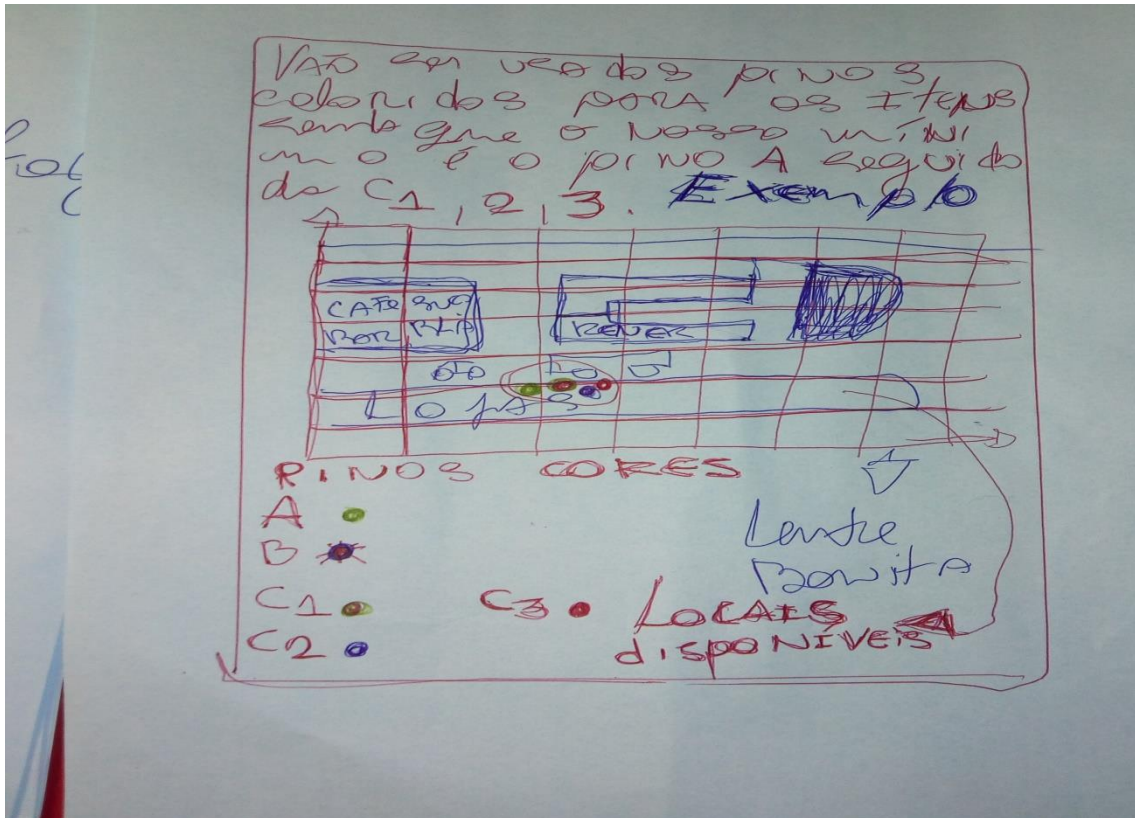 VÃO ser usados pinos
coloridos PARA os Itens
sendo que o Nosso míni
mo é o pino A seguido
de C1, 2, 3. Exemplo
CAFE
BAR
RENER
LOJAS
PINOS CORES
A
B
C1
C2
C3
Bonita
Locais
disponíveis